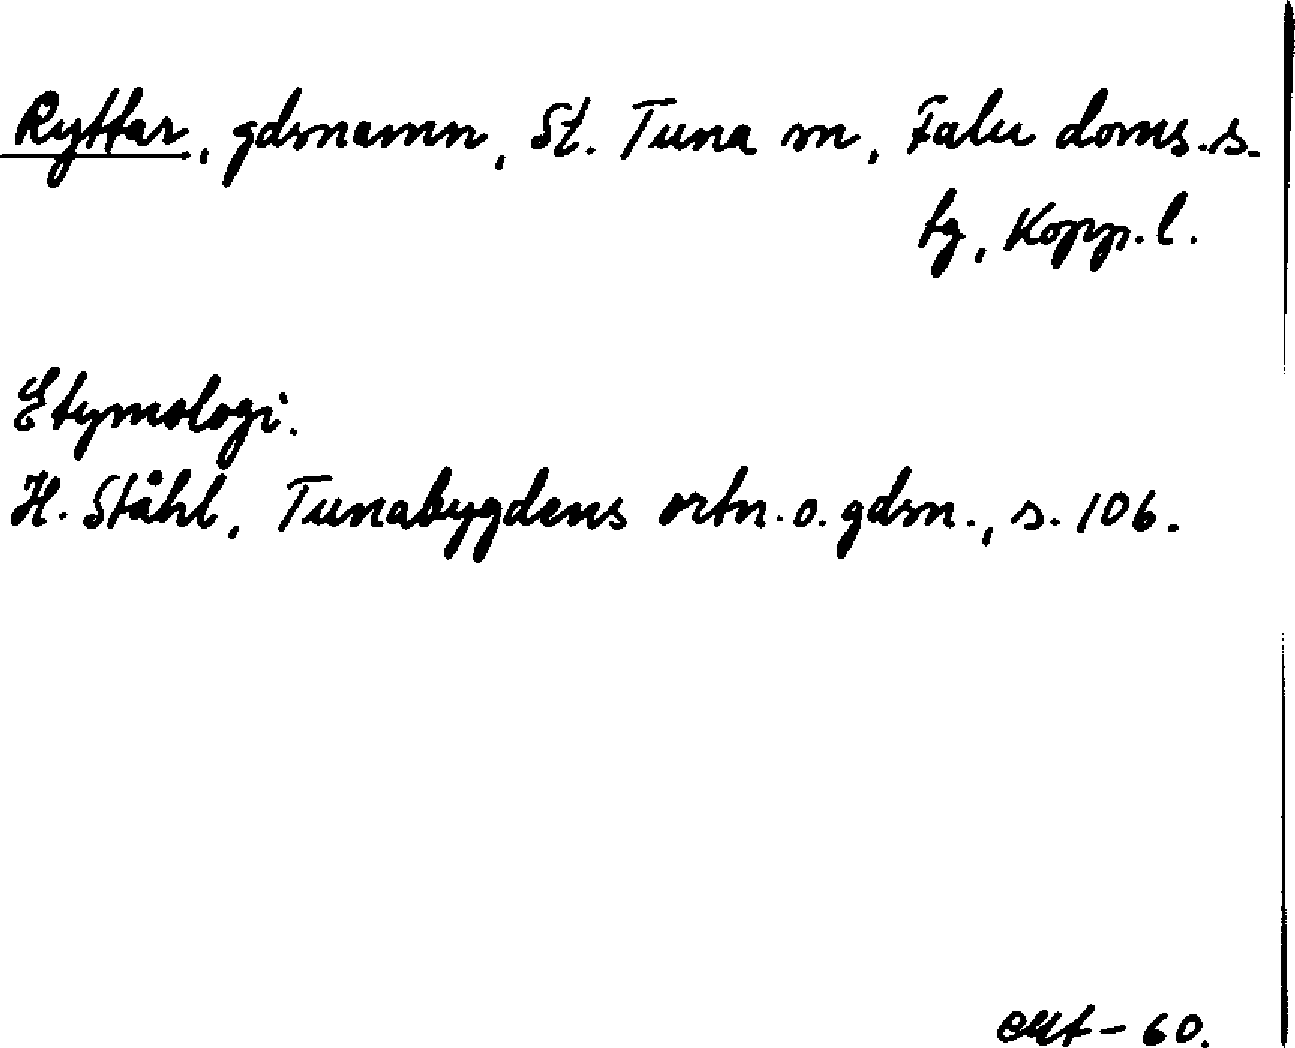 Ryttar, gdsnamn, St. Tuna sn, Falu doms.s.
tg, Kopp.l.
Etymologi.
H. Ståhl, Tunabygdens ortn.o.gdsn., s. 106.
- 60.